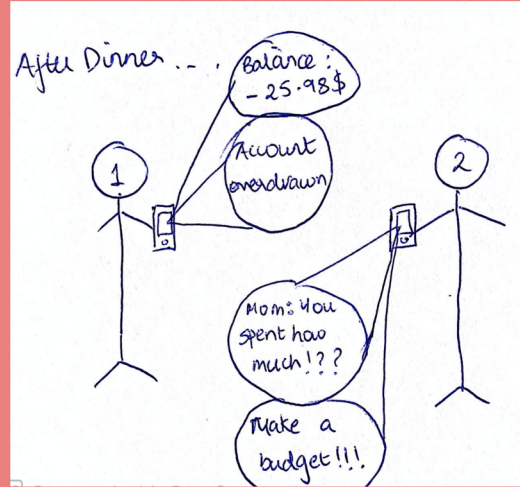 After Dinner ....
Balance:
-25.98$
Account
overdrawn
1
2
Mom: You
spent how
much!??
Make a
budget!!!